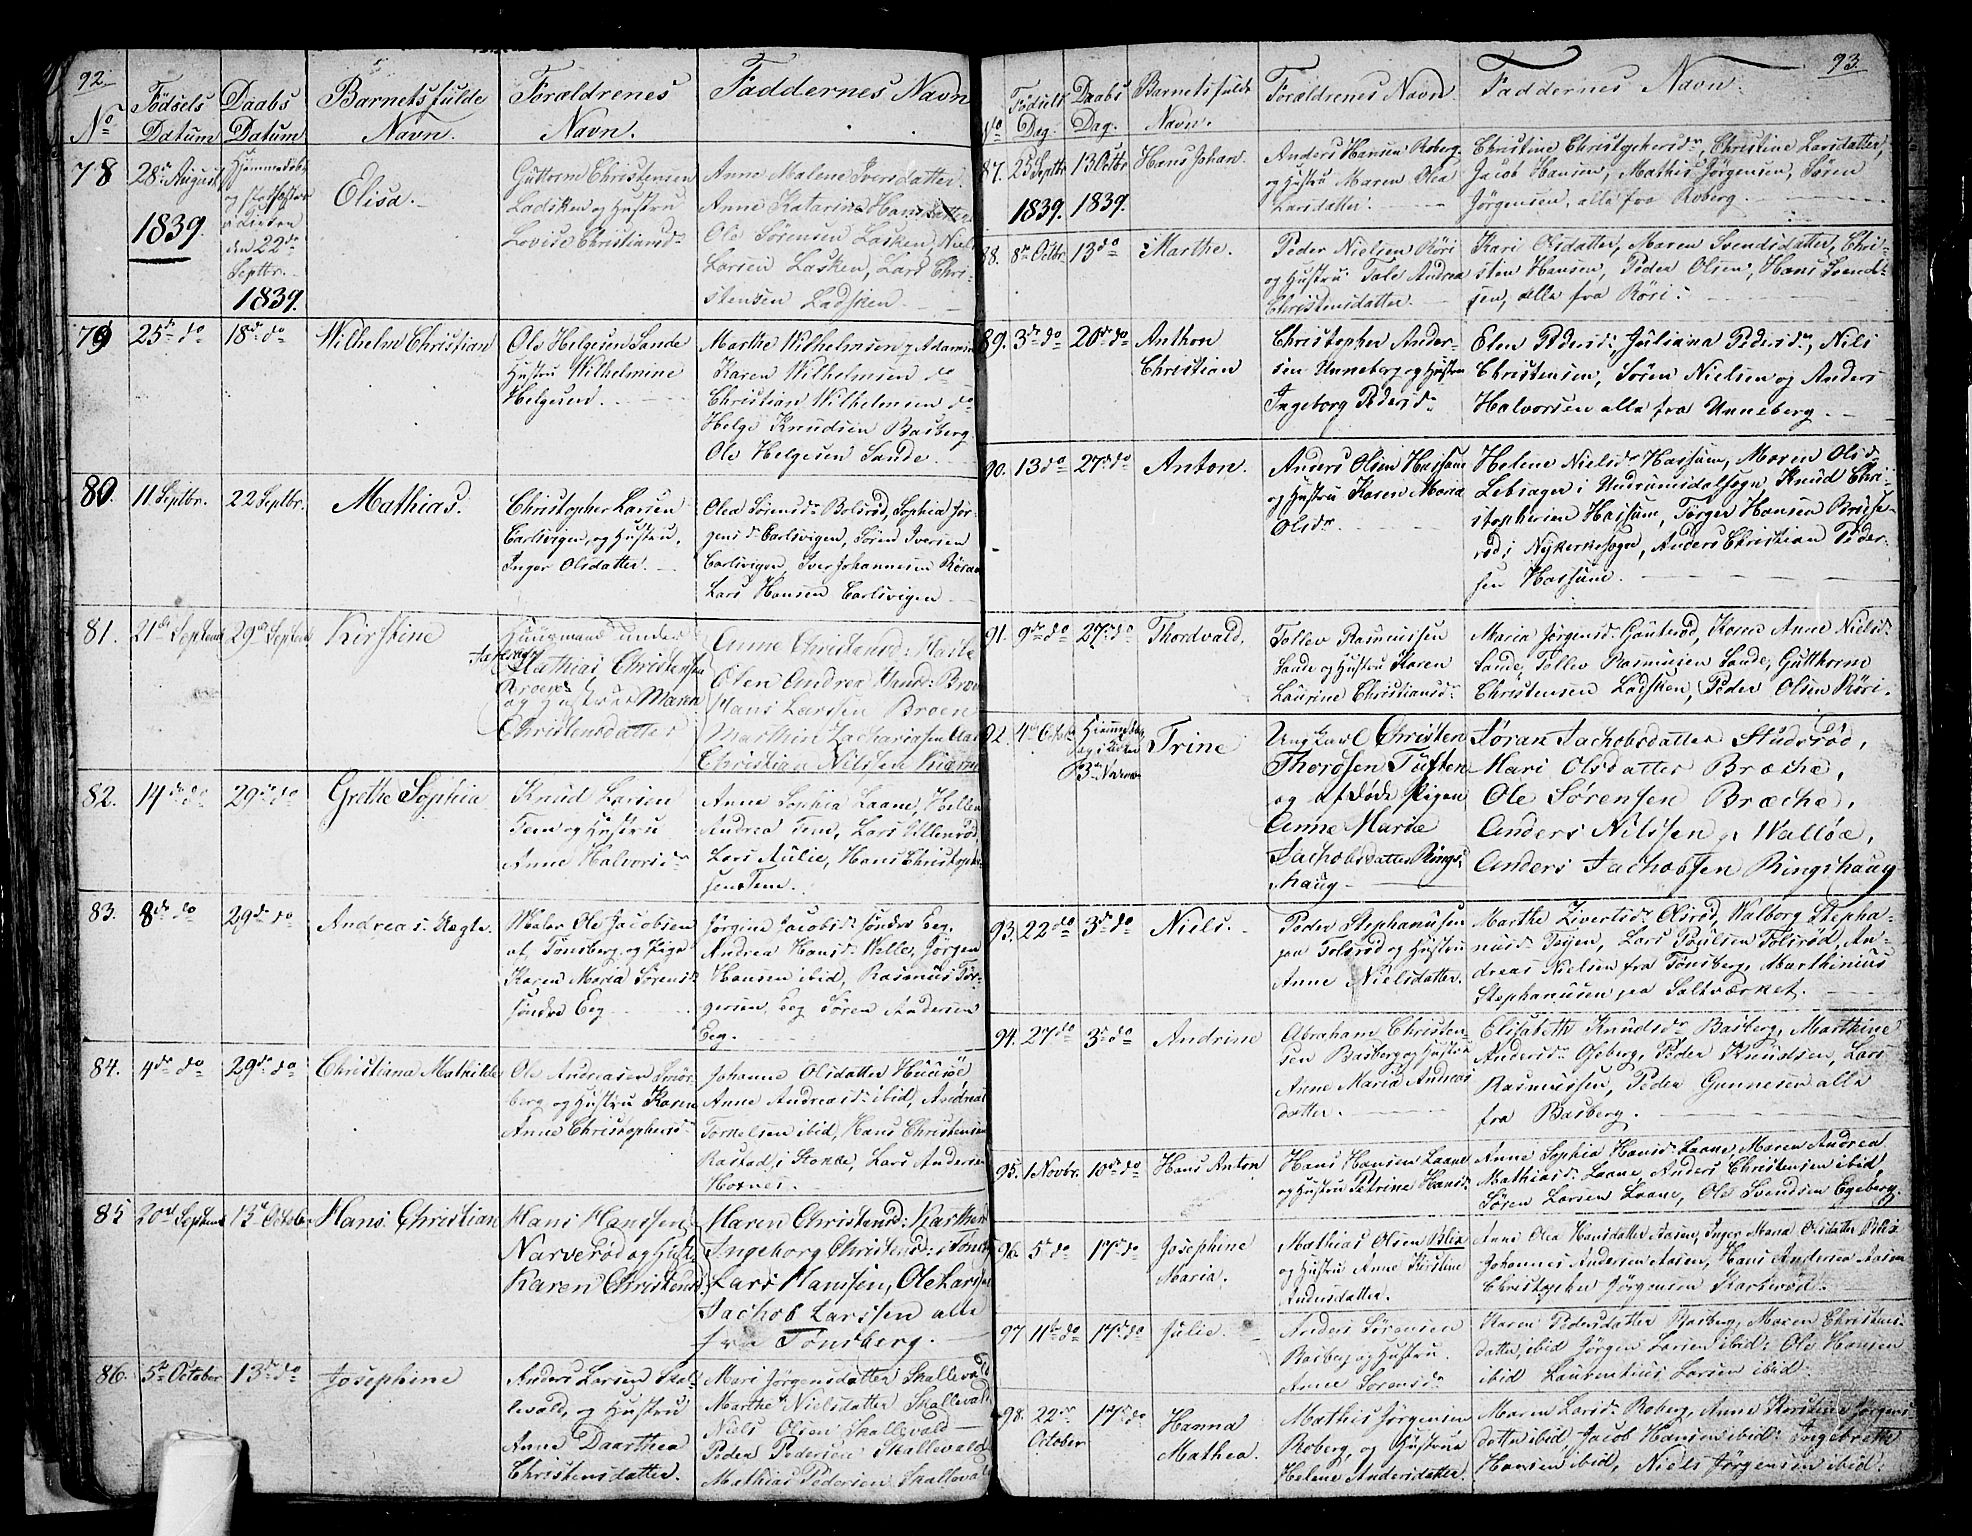 92.
No
Fødsels Datum
Daabs Datum
Barnets fulde Navn.
Forældrenes Navn.
Faddernes Navn
78
28de August 1839.
Hjemmedøbt
den 22de Septbr. 1839.
Elisa.
Guttorm Christensen
Ladsken og Hustru
Lovise Christiansdr
Anne Malene Iversdatter
Anne Katarine Hansdatter
Ole Sørensen Lasken, Niels
Larsen Lasken, Lars Chri-
stensen Ladsken
79
25de do
18de do
Wilhelm Christian
Ole Helgesen Sande
Hustru Wilhelmine
Helgesend.
Marthe Wilhelmsen
Karen Wilhelmsen do
Christian Wilhelmsen do
Helge Knudsen Basberg
Ole Helgesen Sande.
80.
11 Septbr.
22 Septbr.
Mathias.
Christopher Larsen
Carlsvigen, og Hustru,
Inger Olsdatter.
Olea Sørensdr Bolsrød, Sophia Jør-
gensdr Carlsvigen, Søren Iversen
Carlsvigen, Iver Johannesen
Lars Hansen Carlsvigen
81.
21de Septemb
29de Septemb
Kirstine
Huusmand under
Mathias Christensen
Broen
og Hustrue Maren
Christensdatter
Anne Christensd:
Olen Andrea Knud: Broen
Hans Larssen Broen
Marthin Zachariasen
Christian Nilssen
82.
14de do
29de do
Grethe Sophia
Knud Larsen
Tem og Hustru
Anne Halvorsdr
Anne Sophia Laane, Hellene
Andrea Tem, Lars Ollenrød
Lars Aulie, Hans Christopher-
sen Tem.
83.
8de do
29de do
Andreas Kegle.
Ole Jacobsen
af Tønsberg og Pige
Karen Maria Sørensdr
søndre Eeg
Jørgine Jacobsdr søndre Eeg,
Andrea Hansdr Welle, Jørgen
Hansen ibid, Rasmus Tor-
gersen Eeg Søren Andersen
Eeg.
84.
4de do
29de do
Christiana Mathilde
Ole Andreasen Smør-
berg og Hustru Karen
Anne Christophersdr
Johanne Olsdatter
Anne Andreasdr ibid, Andreas
Torkelsen ibid, Hans Christensen
Rastad i Stokke, Lars Andersen
85
20de Septemb
13de October
Hans Christian
Hans Hanssen
Narverød og Hust
Karen Christensd
Maren Christensd:
Ingeborg Christensd: i Tønsb
Lars Hanssen, Ole Larssen
Jachob Larssen alle
fra Tønsberg.
86.
5te October
13de do
Josephine
Anders Larsen Skal-
levald, og Hustru
Anne Daarthea
Christensdatter.
Mari Jørgensdatter Skallevald
Marthe Nielsdatter Skallevald
Niels Olsen Skallevald
Peder Pedersen Skallevald
Mathias Pedersen Skallevald
93.
No
Fødsels Dag.
Daabs Dag.
Barnets fulde Navn.
Forældrenes Navn
Faddernes Navn.
87.
25 Septbr 1839.
13 Octbr 1839.
Hans Johan.
Anders Hansen Roberg.
og Hustru Maren Olea
Larsdatter.
Christine Christophersdr, Christine Larsdatter,
Jacob Hansen, Mathis Jørgensen, Søren
Jørgensen, alle fra Roberg.
88.
8de Octbr.
13 do
Marthe.
Peder Nielsen Røri
og Hustru Tale Andrea
Christensdatter.
Kari Olsdatter, Maren Svendsdatter, Chri-
sten Hansen, Peder Olsen, Hans Svend-
sen, alle fra Røri.
89.
3de do
20de do
Anthon
Christian
Christopher Ander-
sen Unneberg og Hustru
Ingeborg Pedersdr
Elen Pedersdr: Juliana Pedersdr, Nils
Christensen, Søren Nielsen og Anders
Halvorsen alle fra Unneberg.
90.
13 do
27de do
Anton.
Anders Olsen Hassum
og Hustru Karen Maria
Olsdr
Helene Nielsdr Hassum, Maren Olsdr
Lebsager i Undrumsdalsogn Knud Chri-
stophersen Hassum, Torger Hansen
rød i Nykerksogn, Anders Christian Peder-
sen Hassum.
91.
9de do
27de do
Thordvald.
Tollev Rasmussen
Sande og Hustru Karen
Laurine Christiansdr
Maria Jørgensdr Gauterød, Karen Anne Nielsdr
Sande, Tollev Rasmusen Sande, Gutthorm
Christensen Ladsken, Peder Olsen Røri.
92.
4de Octob
Hiemmedøbt
3de
Trine
Ungkarl Christen
Thorsen Toften
og afdøde Pigen
Anne Marie
Jachobsdatter Rings-
haug
Søran Jachobsdatter Studsrød,
Mari Olsdatter Bræche,
Ole Sørensen Bræche,
Anders Nilssen Walløe,
Anders Jachobsen Ringshaug
93.
22 do
3de do
Niels.
Peder Stephanusen
paa Tolsrød og Hustru
Anne Nielsdatter.
Marthe Zivertsdr Olsrød, Walborg Stepha-
nusdr Teyen, Lars Poulsen Tolsrød, An-
dreas Nielsen fra Tønsberg, Marthinius
Stephanusen paa Saltværket.
94.
27 do
3de do
Andrine
Abraham Christen-
sen Basberg og Hustru
Anne Maria Andreas
datter.
Elisabeth Knudsdr Basberg, Marthine
Andersdr Oseberg, Peder Knudsen, Lars
Rasmussen, Peder Gunnesen alle
fra Basberg.
95.
1 Novbr.
10de do
Hans Anton
Hans Hansen Laane
og Hustru Petrine Hansdr
Anne Sophia Hansdr Laane, Maren Andrea
Mathiasdr Laane, Anders Christensen ibid,
Søren Larsen Laane, Ole Svendsen Egeberg.
96.
5te do
17de do
Josephine
Maria.
Mathias Olsen Blix
og Hustru Anne Kirstine
Andersdatter.
Anne Olea Hansdatter Aasen, Inger Maria Olsdatter Blix
Johannes Andersen Aasen, Hans Andersen Aasen
Christopher Jørgensen Karlerød.
97
11te do
17de do
Julie.
Anders Sørensen
Basberg og Hustru.
Anne Sørensdr
Karen Pedersdatter Basberg, Maren Christens-
datter, ibid Jørgen Larsen ibid. Ole Hansen
ibid Laurentius Larsen ibid.
98.
22de October
17de do
Hanna
Mathea.
Mathis Jørgensen
Roberg, og Hustrue
Helene Andersdatter.
Maren Larsdr Roberg, Anne Kirstine Jørgens-
datter ibid, Jacob Hansen ibid. Ingebrette
Hansen ibid, Niels Jørgensen ibid.